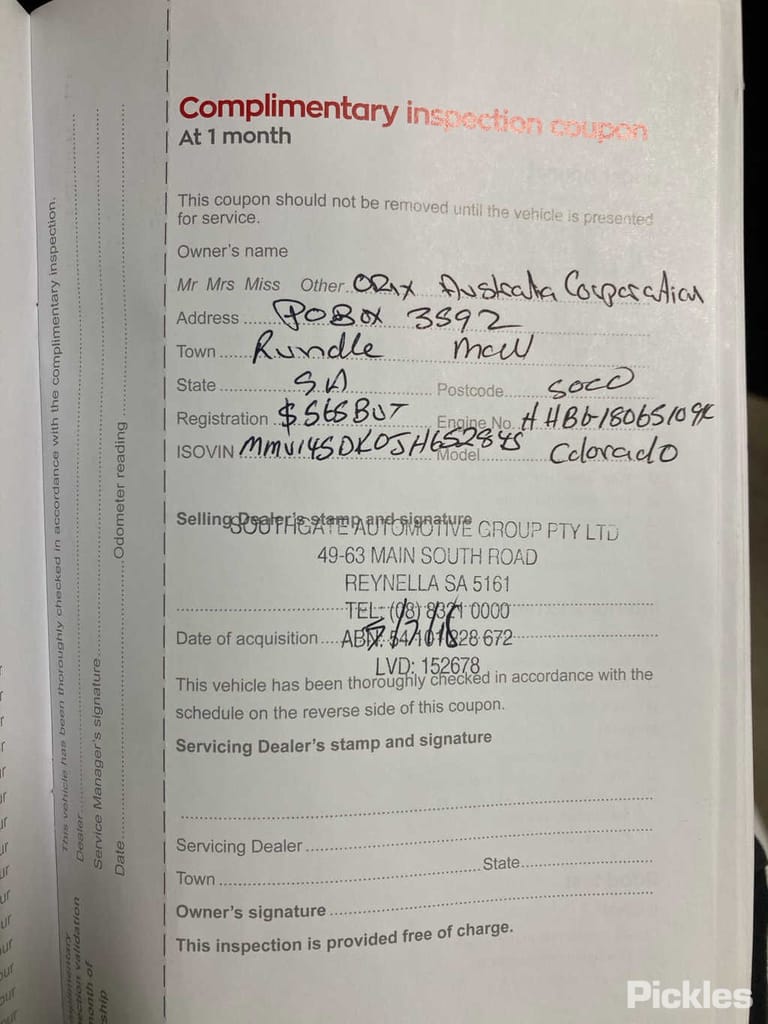 Complimentary inspection coupon
At 1 month
This coupon should not be removed until the vehicle is presented
for service.
Owner's name
Mr Mrs Miss Other ORIX Australia Corporation
Address PO Box 3392
Town Rundle Mall
State SA Postcode 5000
Registration S565BUT Engine No.
ISOVIN Model Colorado
Selling Dealer's stamp and signature
SOUTHGATE AUTOMOTIVE GROUP PTY LTD
49-63 MAIN SOUTH ROAD
REYNELLA SA 5161
TEL: (08) 8321 0000
Date of acquisition
ABN: 54 101 228 672
LVD: 152678
This vehicle has been thoroughly checked in accordance with the
schedule on the reverse side of this coupon.
Servicing Dealer's stamp and signature
Servicing Dealer
Town State
Owner's signature
This inspection is provided free of charge.
This vehicle has been thoroughly checked in accordance with the complimentary inspection.
Dealer
Service Manager's signature Odometer reading
Date
Pickles